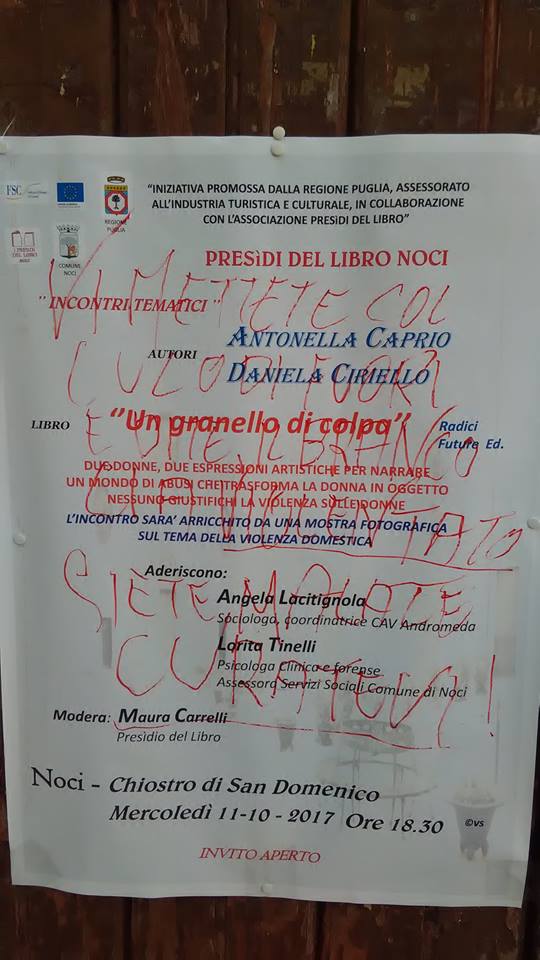 FSC
REGIONE
PUGLIA
I PRESÌDI
DEL LIBRO
NOCI
COMUNE
NOCI
“INIZIATIVA PROMOSSA DALLA REGIONE PUGLIA, ASSESSORATO
ALL’INDUSTRIA TURISTICA E CULTURALE, IN COLLABORAZIONE
CON L’ASSOCIAZIONE PRESìDI DEL LIBRO”
PRESìDI DEL LIBRO NOCI
"INCONTRI TEMATICI"
AUTORI
ANTONELLA CAPRIO
DANIELA CIRIELLO
LIBRO
“Un granello di colpa”
Radici
Future Ed.
DUE DONNE, DUE ESPRESSIONI ARTISTICHE PER NARRARE
UN MONDO DI ABUSI CHE TRASFORMA LA DONNA IN OGGETTO
NESSUNO GIUSTIFICHI LA VIOLENZA SULLE DONNE
L’INCONTRO SARA’ ARRICCHITO DA UNA MOSTRA FOTOGRAFICA
SUL TEMA DELLA VIOLENZA DOMESTICA
Aderiscono:
Angela Lacitignola
Sociologa, coordinatrice CAV Andromeda
Lorita Tinelli
Psicologa Clinica e forense
Assessora Servizi Sociali Comune di Noci
Modera: Maura Carrelli
Presìdio del Libro
Noci - Chiostro di San Domenico
Mercoledì 11-10 - 2017 Ore 18.30
©vs
INVITO APERTO
VI METTETE COL
CULO DI FUORI
E DITE IL BRANCO
VIOLENTATO
SIETE MALATE
CURATEVI!